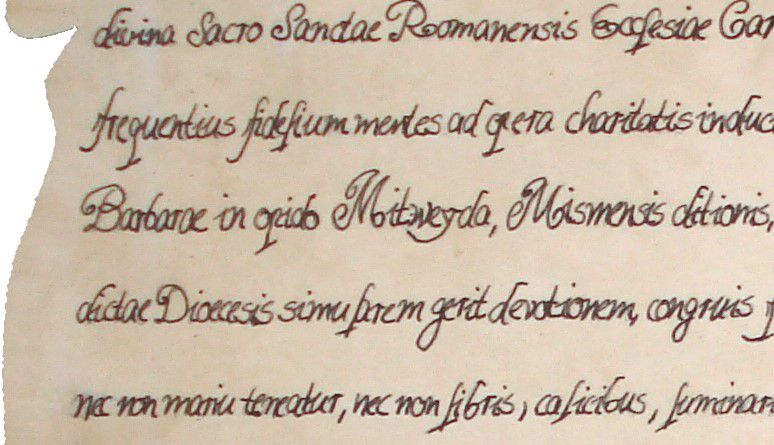 divina Sacro Sanctae Roomanensis Ecclesiae Car
frequentius fidelium mentes ad opera charitatis induc
Barbarae in opido Mitzweyda, Mismensis ditionis,
dictae Dioecesis simularem gerit devotionem, congruis
nec non manu teneatur, nec non libris, calicibus, luminar